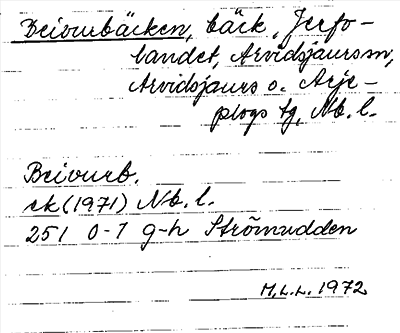 Beiourbäcken, bäck, Jerfo-
landet, Arvidsjaurs sn,
Arvidsjaurs o. Arje-
plogs tg, Nb. l.
Beiourb.
ek (1971) Nb. l.
25 I 0-1 g-h Strömudden
M.L.L. 1972